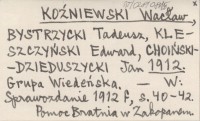 KOŹNIEWSKI Wacław,
BYSTRZYCKI Tadeusz, KLE-
SZCZYŃSKI Edward, CHOIŃSKI-
-DZIEDUSZYCKI Jan 1912.
Grupa Wiedeńska. — W:
Sprawozdanie 1912 r, s. 40-42.
Pomoc Bratnia w Zakopanem.